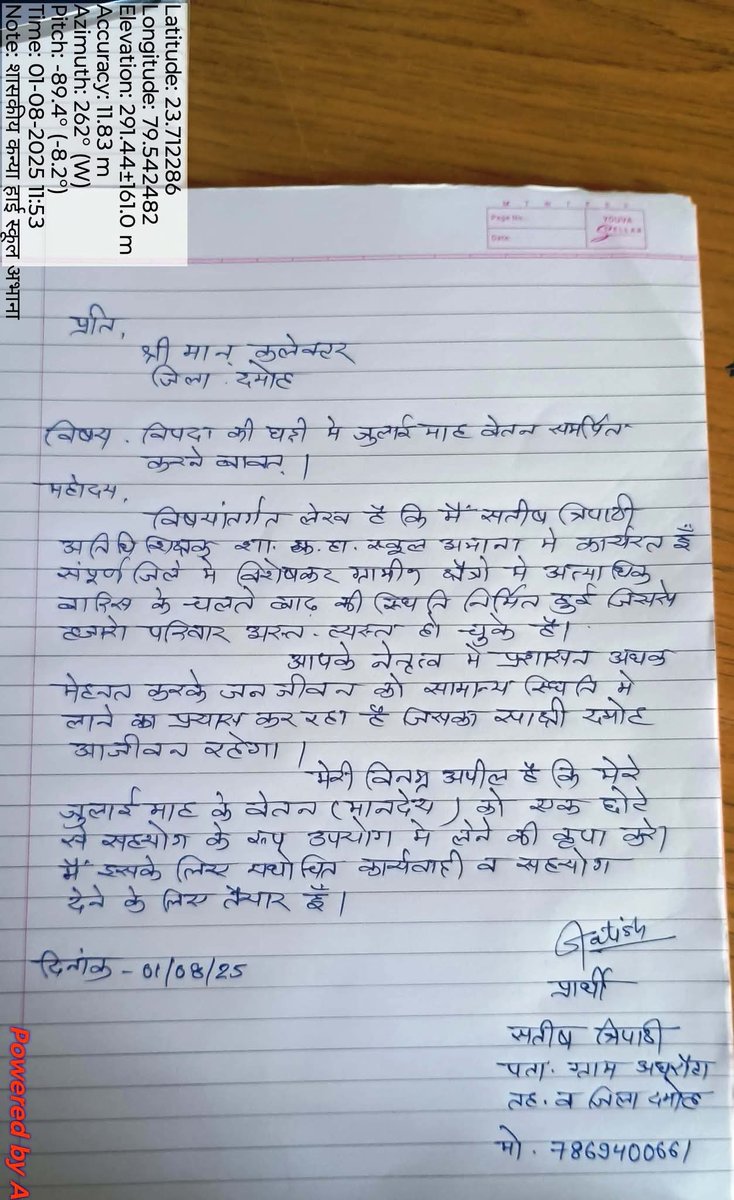 Latitude: 23.712286
Longitude: 79.542482
Elevation: 291.44±161.0 m
Accuracy: 11.83 m
Azimuth: 262° (W)
Pitch: -89.4° (-8.2°)
Time: 01-08-2025 11:53
Note: शासकीय कन्या हाई स्कूल अभाना
M T W T F S S
Page No.
Date:
YOUVA
प्रति,
श्री मान् कलेक्टर
जिला. दमोह
विषय. विपदा की घड़ी मे जुलाई माह वेतन समर्पित
करने बावत् |
महोदय,
विषयांतर्गत लेख है कि मैं सतीष त्रिपाठी
अतिथि शिक्षक शा. क. हा. स्कूल अभाना मे कार्यरत हूँ
संपूर्ण जिले मे विशेषकर ग्रामीण क्षैत्रो मे अत्याधिक
बारिस के चलते बाढ़ की स्थिति निर्मित हुई जिससे
हजारो परिवार अस्त-व्यस्त हो चुके है।
आपके नेतृत्व मे प्रशासन अथक
मेहनत करके जन जीवन को सामान्य स्थिति मे
लाने का प्रयास कर रहा है जिसका साक्षी दमोह
आजीवन रहेगा |
मेरी विनम्र अपील है कि मेरे
जुलाई माह के वेतन (मानदेय) को एक छोटे
से सहयोग के रूप उपयोग मे लेने की कृपा करे।
मैं इसके लिए यथोचित कार्यवाही व सहयोग
देने के लिए तैयार हूँ |
Satish
दिनांक - 01/08/25
प्रार्थी
सतीष त्रिपाठी
पता. ग्राम
तह. व जिला दमोह
मो. 7869400661
Powered by A